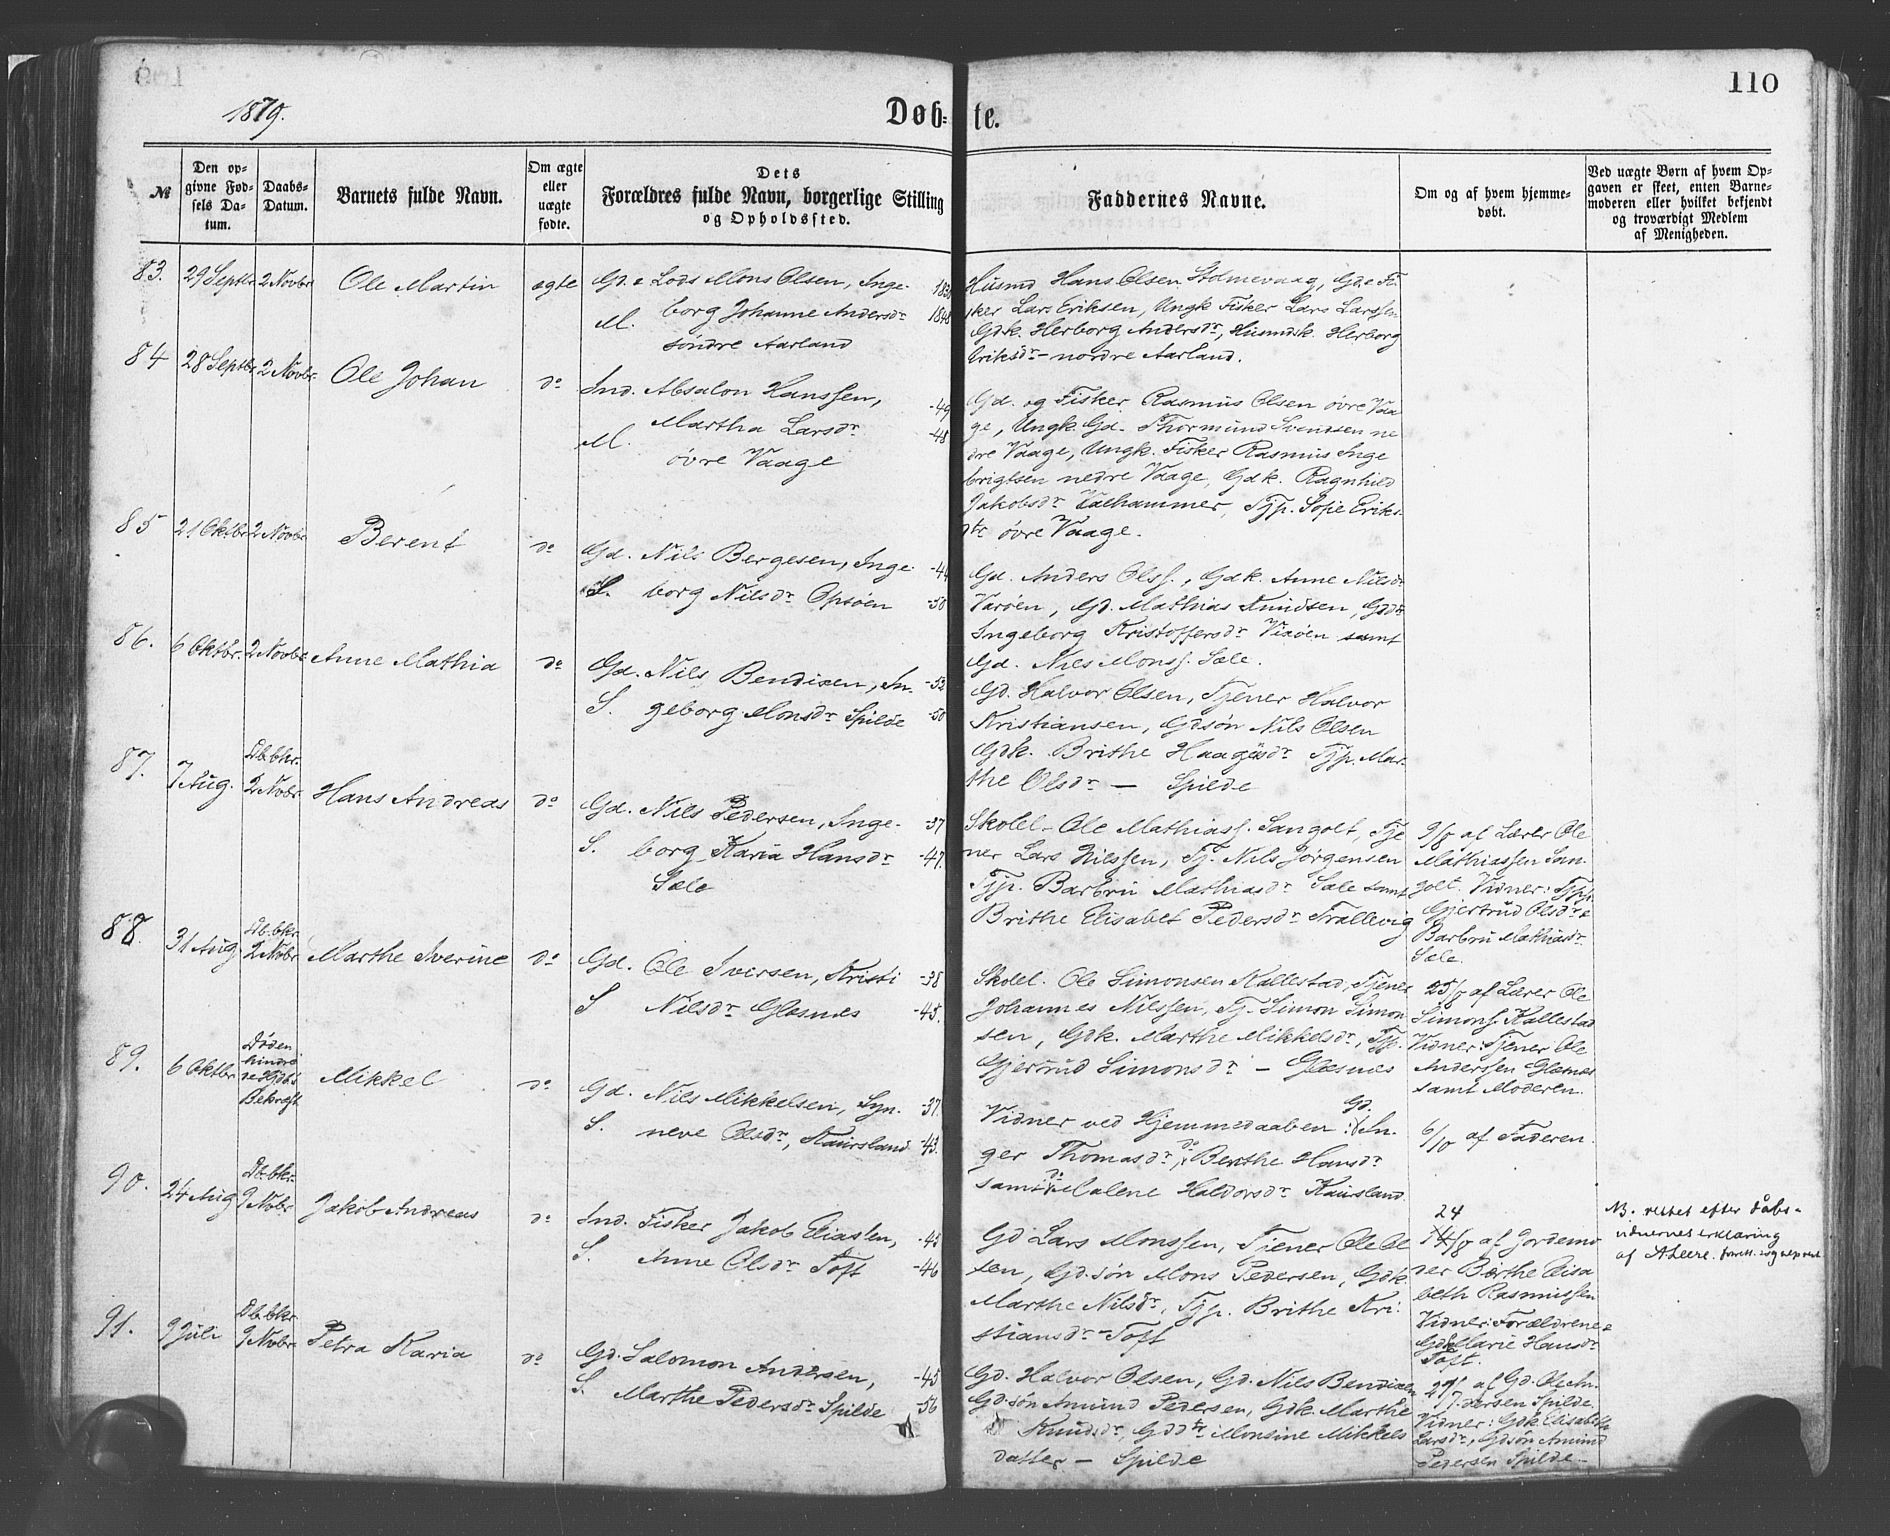 110
1879.
Døb- te.
№
Den op-
givne Fød-
sels Da-
tum.
Daabs-
Datum.
Barnets fulde Navn.
Om ægte
eller
uægte
fødte.
Dets
Forældres fulde Navn, borgerlige Stilling
og Opholdssted.
Faddernes Navne.
Om og af hvem hjemme-
døbt.
Ved uægte Børn af hvem Op-
gaven er skeet, enten Barne-
moderen eller hvilket bekjendt
og troværdigt Medlem
af Menigheden.
83. 29 Septbr 2 Novbr Ole Martin ægte
Gd. e Lods Mons Olsen, Inge-
borg Johanne Andersdr 1848
M.
söndre Aarland
Husmd Hans Olsen Stolmevaag, Gd. e Fi
sker Lars Eriksen, Ungk Fisker Lars Larssen
Gdk. Herborg Andersdr, Husmdsk. Herborg
Eriksdr - nordre Aarland.
84 28 Septbr 2 Novbr. Ole Johan do
Ind. Absalon Hanssen, -49
Martha Larsdr -48
M.
øvre Vaage
Gd. og Fisker Rasmus Olsen øvre Vaa
ge, Ungk. Gd. Thormund Svendsen ne
dre Vaage, Ungk. Fisker Rasmus Inge
brigtsen nedre Vaage, Gdk. Ragnhild
Jakobsdr Valhammer, Tjp. Sofie Eriks-
dtr øvre Vaage.
85 21 Oktbr 2 Novbr Berent do
Gd. Nils Bergesen, Inge- -44
S. borg Nilsdr Opsøen -50
Gd. Anders Olss., Gdk. Anne Nilsdr
Varøen, Gd. Mathias Knudsen, Gddtr
Ingeborg Kristoffersdr Vixøen samt
Gd. Nils Monss. Sæle.
86. 6 Oktbr. 2 Novbr Anne Mathia do
Gd. Nils Bendixen, In- -52
S. geborg Monsdr Spilde -50
Gd. Halvor Olsen, Tjener Halvor
Kristiansen, Gdsøn Nils Olsen
Gdk. Brithe Haagøsdr Tjp. Mar-
the Olsdr - Spilde
87. 7 Aug. Db. bkr. 2 Nvbr. Hans Andreas do
Gd. Nils Pedersen, Inge- -37
S. borg Karia Hansdr -47.
Sæle
Skolel. Ole Mathiass. Sangolt, Tje
ner Lars Nilssen, Tj. Nils Jørgensen
Tjp. Barbru Mathiasdr Sæle samt
Brithe Elisabet Pedersdr Trællevig
9/8 af Lærer Ole
Mathiassen San-
golt. Vidner: Tjpp.
Gjertrud Olsdr e
Barbru Mathiasdr
Sæle.
88. 31 Aug Db. bkr. 2 Nvbr Marthe Iverine do
Gd. Ole Iversen, Kristi -38
S Nilsdr Glesnes -45.
Skolel. Ole Simonsen Kallestad, Tjener
Johannes Nilssen, Tj. Simon Simon
sen, Gdk. Marthe Mikkelsdr, Tjp.
Gjertrud Simonsdr - Glesnes
25/8 af Lærer Ole
Simonss. Kallestad
Vidner: Tjener Ole
Anderssen Glesnes
samt Moderen.
89. 6 Oktbr Døden
hindre
de Hjdbs
Bekræft
Mikkel do
Gd. Nils Mikkelsen, Syn- -37.
S. neve Olsdr, Kaursland -43.
Gd.
Vidner ved Hjemmedaaben: In-
ger Thomasdr, do Berthe Hansdr
samt do Malene Haldorsdr Kaursland
6/10 af Faderen.
90. 24 Aug Db. bkr. 9 Nvbr Jakob Andreas do
Ind. Fisker Jakob Eliassen, -45
S. Anne Olsdr Toft -46
Gd Lars Monssen, Tjener Ole Ol
sen, Gd.søn Mons Pedersen, Gdk
Marthe Nilsdr, Tjp. Brithe Kri-
stiansdr - Toft
24
14/8 af Jordemo
der Birthe Elisa
beth Rasmussen
Vidner: Forældrene e
Gdk Marie Hansdr
Toft.
NB. rettet efter dåbs-
vidnernes erklæring
91. 9 Juli Db. bkr 9 Nvbr. Petra Karia do
Gd. Salomon Andersen, -45
S. Marthe Pedersdr Spilde -56
Gd. Halvor Olsen, Gd. Nils Bendixen
Gd.søn Amund Pedersen, Gdk. Marthe
Knudsdr, Gddtr Monsine Mikkels
datter - Spilde
af Gd. Ole An-
dersen Spilde.
Vidner: Gdk. Elisabeth
Larsdr, Gdsøn Amund
Pedersen Spilde.-